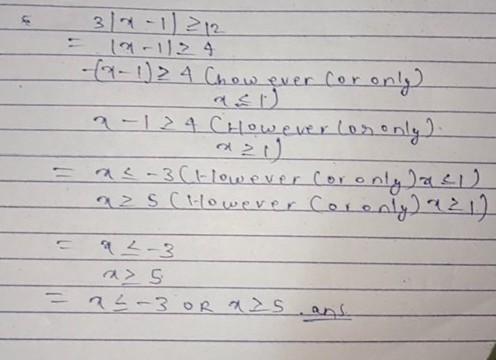 3|x-1| ≥ 12
= |x-1| ≥ 4
-(x-1) ≥ 4 (how ever (or only)
x ≤ 1)
x-1 ≥ 4 (However (or only).
x ≥ 1)
= x ≤ -3 (However (or only) x ≤ 1)
x ≥ 5 (However (or only) x ≥ 1)
= x ≤ -3
x ≥ 5
= x ≤ -3 OR x ≥ 5 .ans